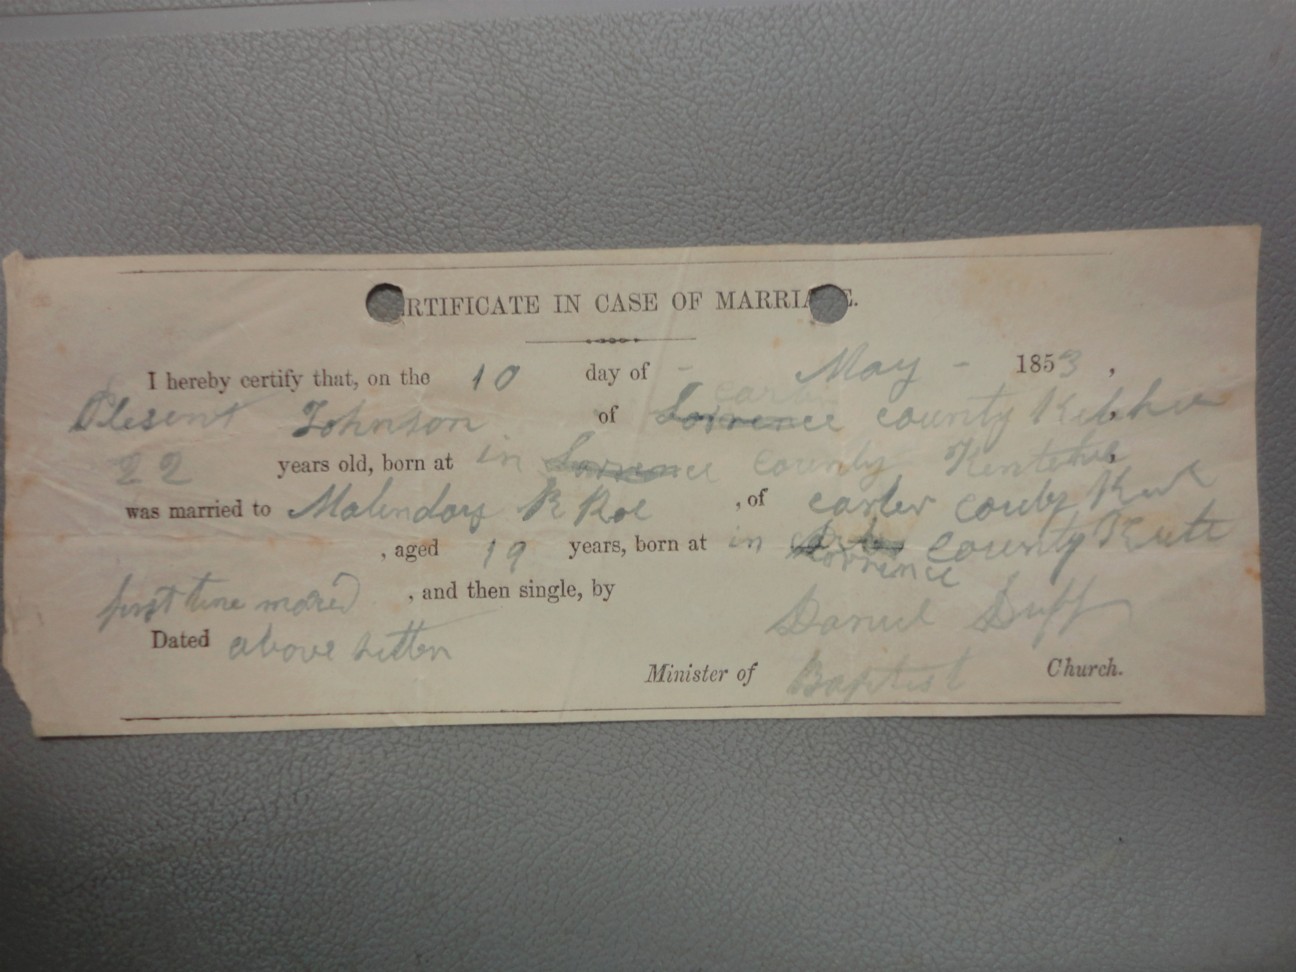 RTIFICATE IN CASE OF MARRIA E.
I hereby certify that, on the 10 day of - May - 1853 ,
Plesent Johnson of Lorrence carter county
22 years old, born at in Lorrence county
was married to R Roe , of carter couty
, aged 19 years, born at in Lorrence county
first time , and then single, by Daniel Duff
Dated above
Minister of Baptist Church.